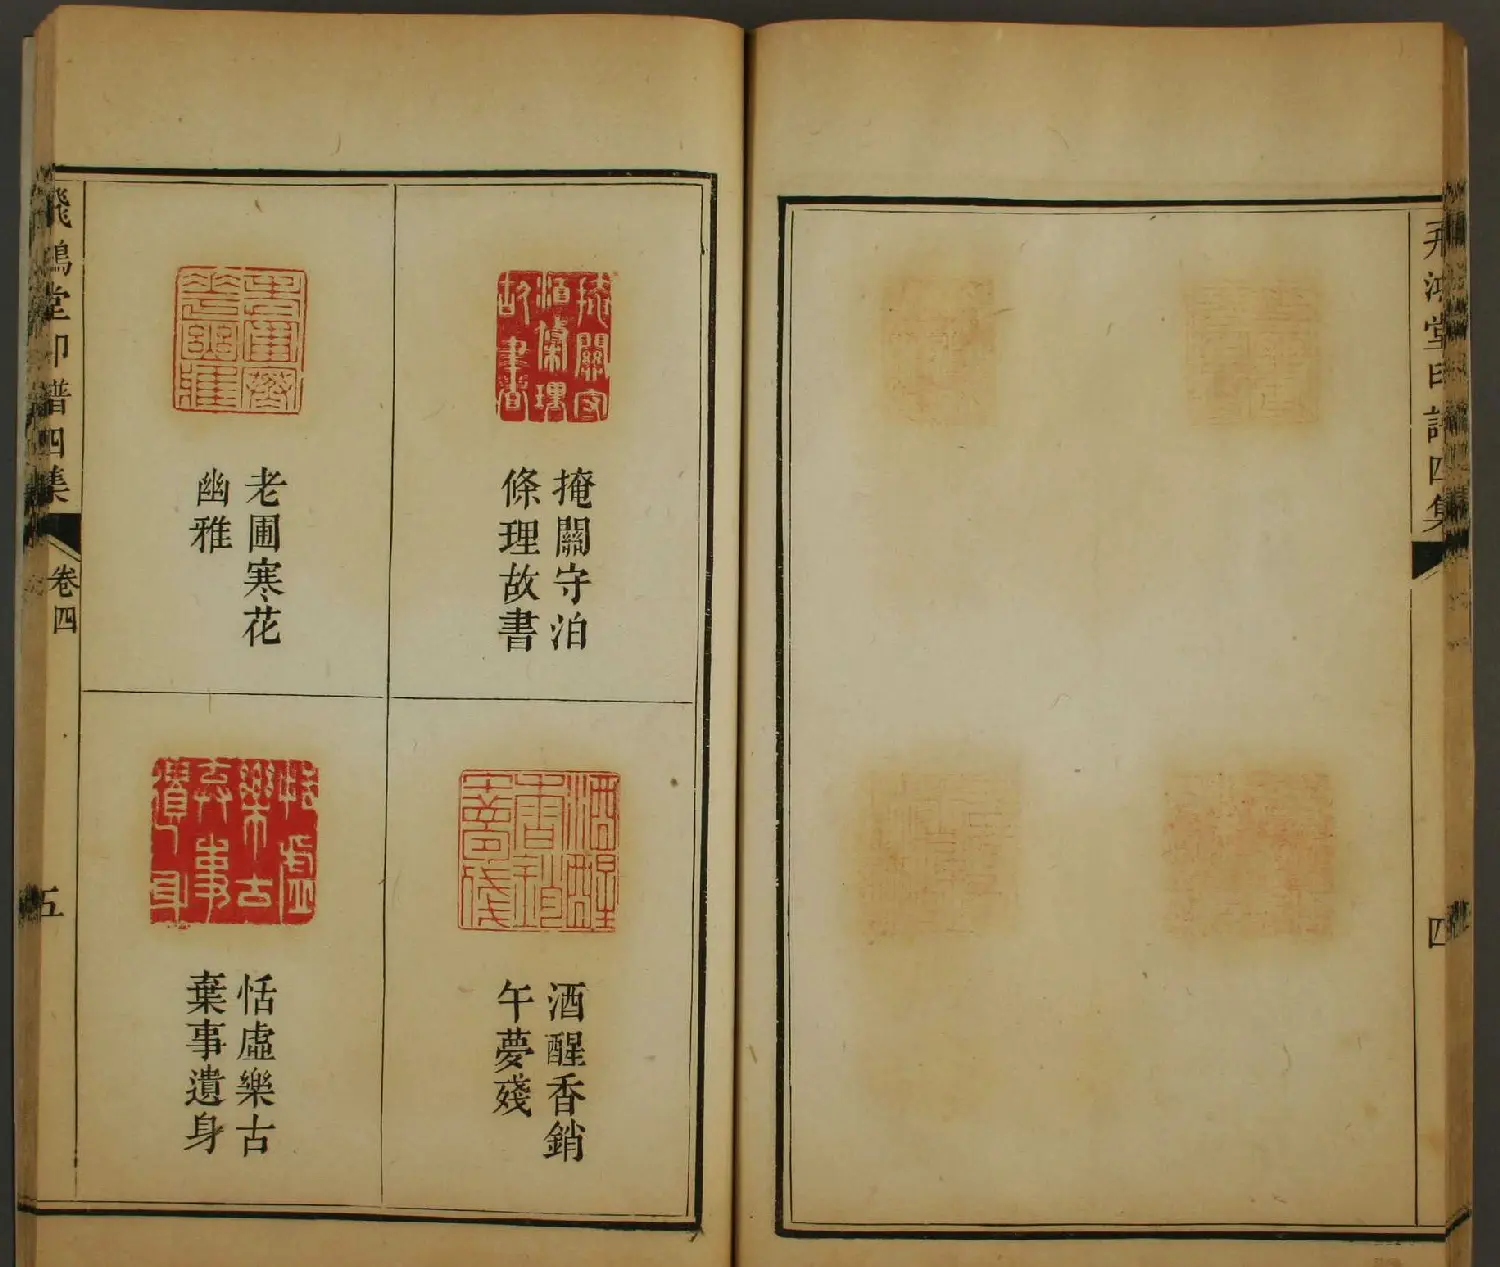 飛鴻堂印譜四集
四
掩關守泊
條理故書
老圃寒花
幽雅
酒醒香銷
午夢殘
恬虛樂古
棄事遺身
飛鴻堂印譜四集
卷四
五